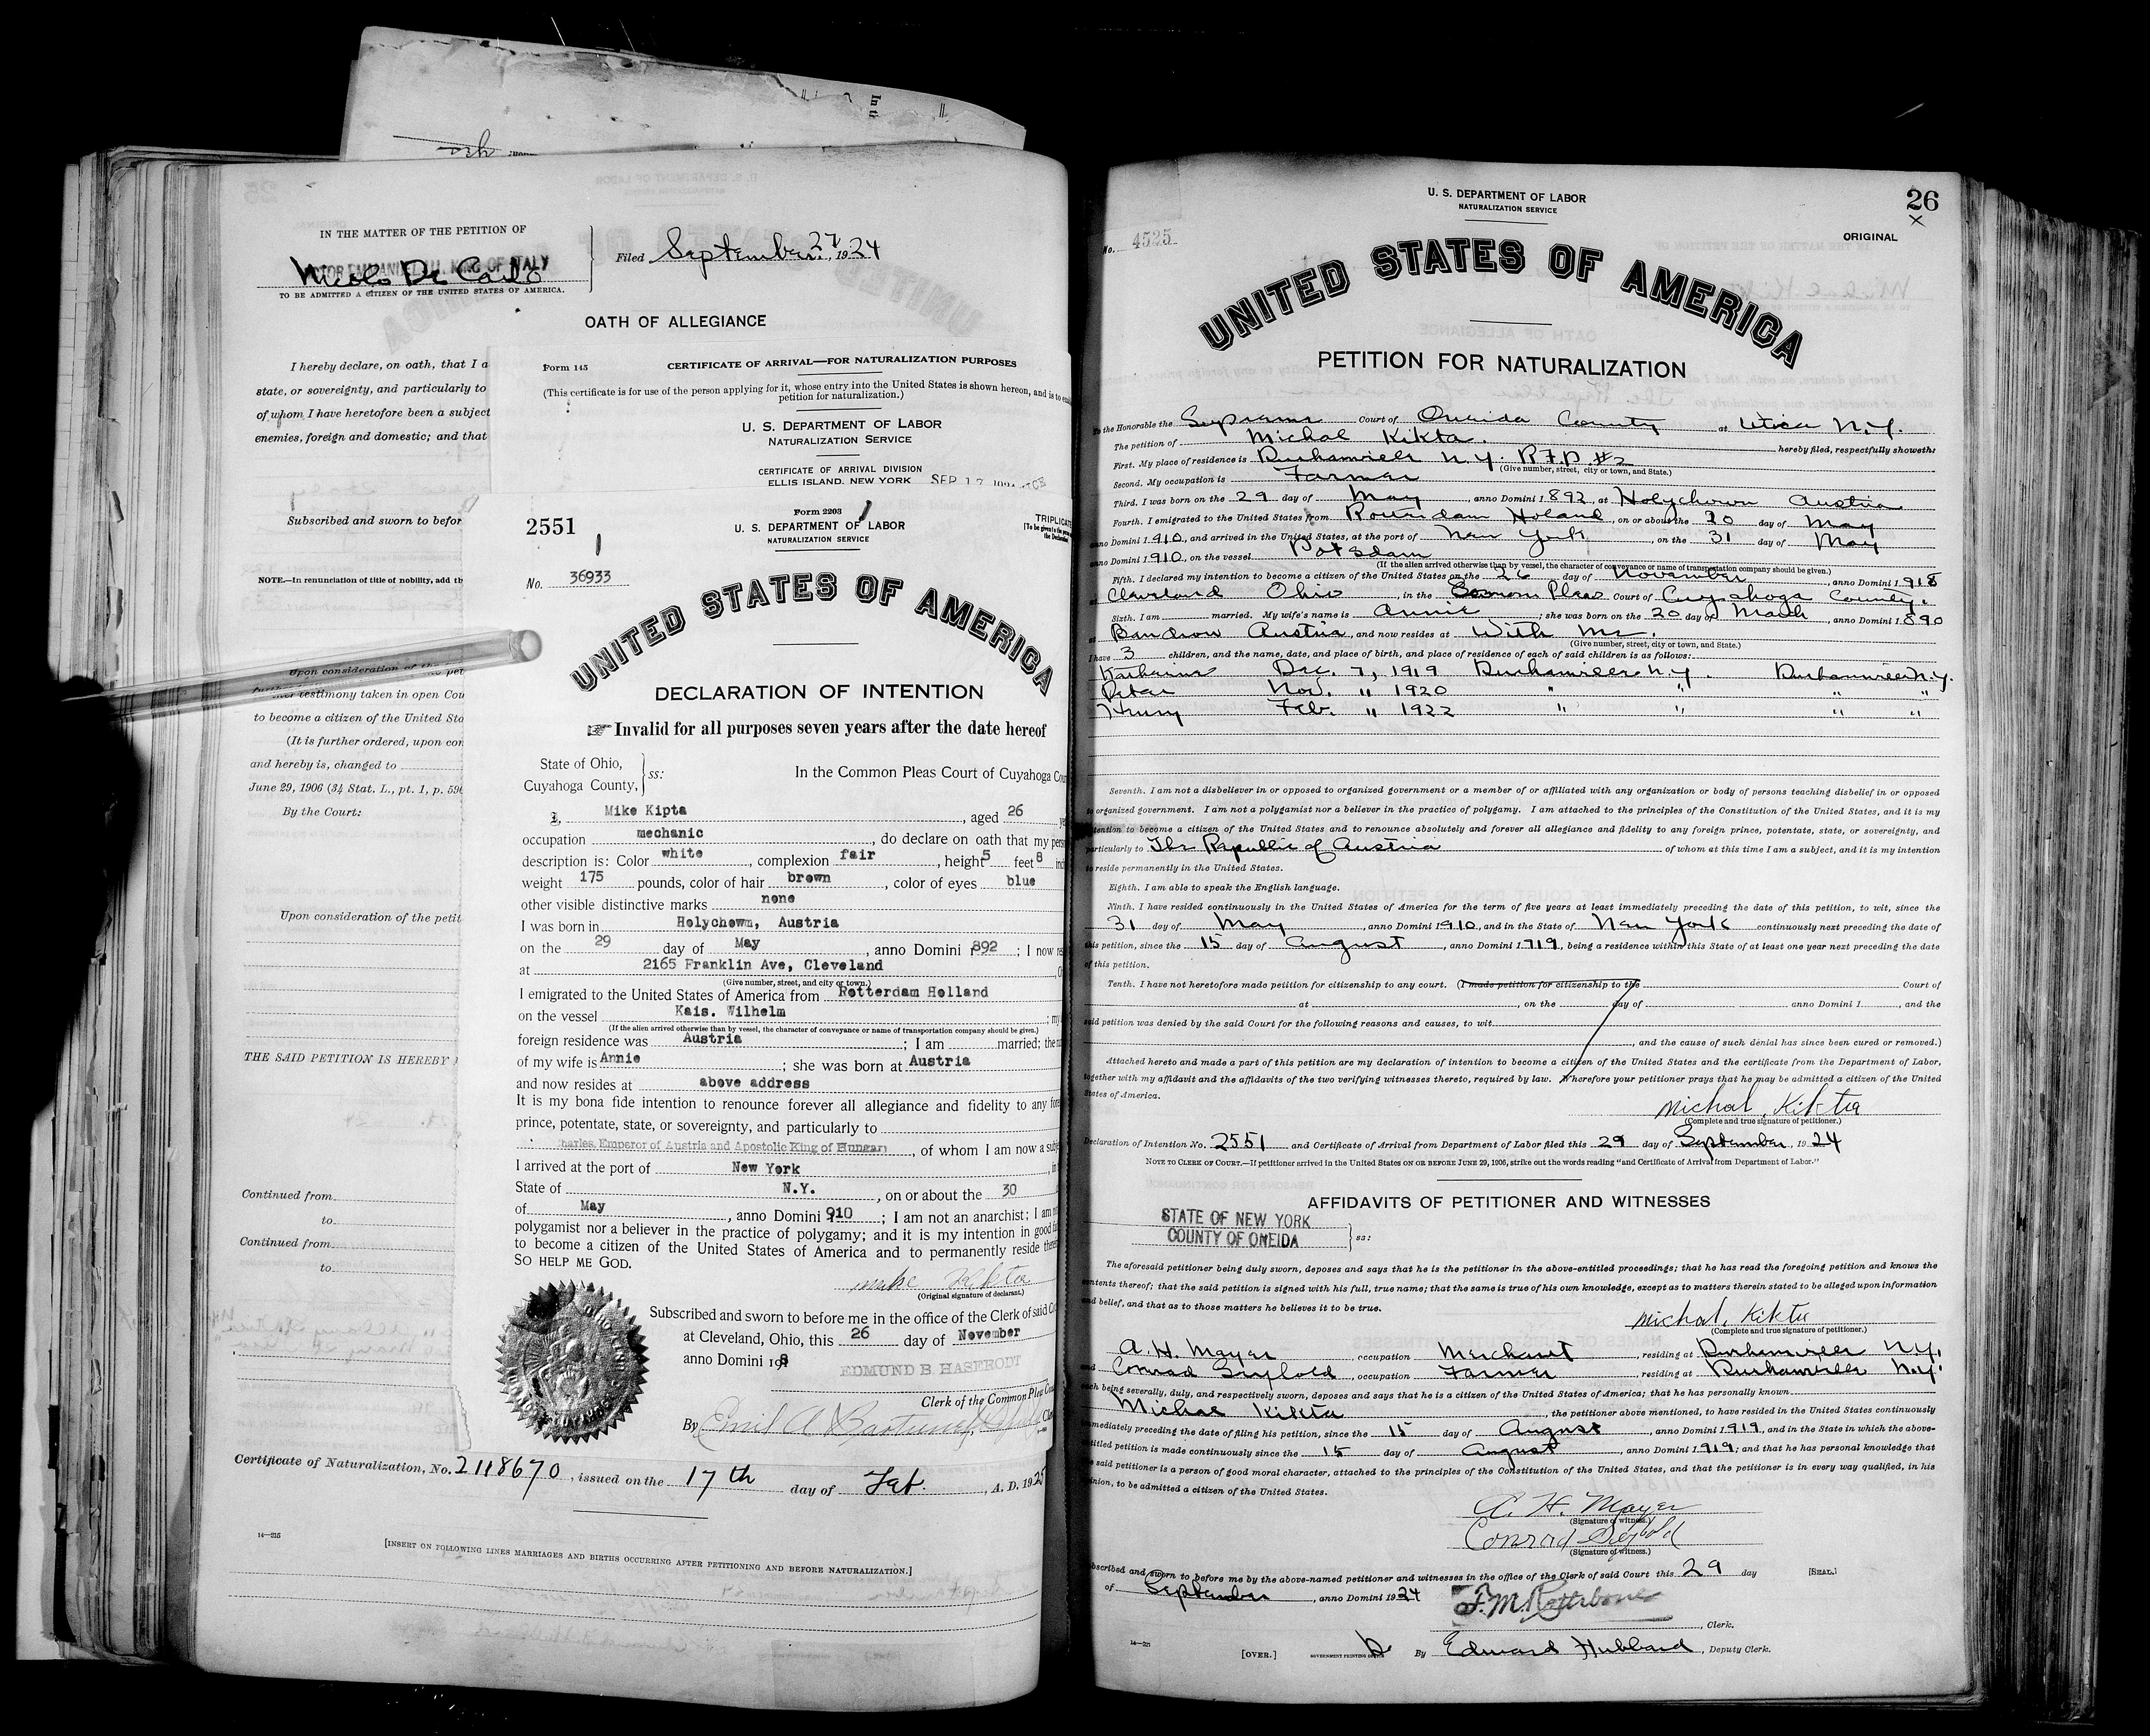 IN THE MATTER OF THE PETITION OF
VICTOR EMMANUEL III, KING OF ITALY
Nicolo De Carlo
TO BE ADMITTED A CITIZEN OF THE UNITED STATES OF AMERICA.
Filed September 27, 1924
OATH OF ALLEGIANCE
I hereby declare, on oath, that I a
state, or sovereignty, and particularly to
of whom I have heretofore been a subject
enemies, foreign and domestic; and that
Subscribed and sworn to befor
NOTE.—In renunciation of title of nobility, add th
Upon consideration of the pet
further testimony taken in open Cou
to become a citizen of the United Sta
(It is further ordered, upon con
and hereby is, changed to
June 29, 1906 (34 Stat. L., pt. 1, p. 596
By the Court:
Upon consideration of the petit
THE SAID PETITION IS HEREBY
Continued from
to
Continued from
to
Form 145
CERTIFICATE OF ARRIVAL—FOR NATURALIZATION PURPOSES
(This certificate is for use of the person applying for it, whose entry into the United States is shown hereon, and is to
petition for naturalization.)
U. S. DEPARTMENT OF LABOR
NATURALIZATION SERVICE
CERTIFICATE OF ARRIVAL DIVISION
ELLIS ISLAND, NEW YORK SEP 17
Form 2203
2551
U. S. DEPARTMENT OF LABOR
NATURALIZATION SERVICE
TRIPLICATE
[To be given to the
the Declarant
No. 36933
UNITED STATES OF AMERICA
DECLARATION OF INTENTION
☞ Invalid for all purposes seven years after the date hereof
State of Ohio,
Cuyahoga County, ss: In the Common Pleas Court of Cuyahoga Cou
I, Mike Kipta, aged 26 ye
occupation mechanic, do declare on oath that my pers
description is: Color white, complexion fair, height 5 feet 8 inc
weight 175 pounds, color of hair brown, color of eyes blue
other visible distinctive marks none
I was born in Holychown, Austria
on the 29 day of May, anno Domini 1892; I now re
at 2165 Franklin Ave, Cleveland
(Give number, street, and city or town.)
I emigrated to the United States of America from Rotterdam Holland
on the vessel Kais. Wilhelm; my
(If the alien arrived otherwise than by vessel, the character of conveyance or name of transportation company should be given.)
foreign residence was Austria; I am married; the na
of my wife is Annie; she was born at Austria
and now resides at above address
It is my bona fide intention to renounce forever all allegiance and fidelity to any fore
prince, potentate, state, or sovereignty, and particularly to
Charles, Emperor of Austria and Apostolic King of Hungary, of whom I am now a subje
I arrived at the port of New York, in
State of N.Y., on or about the 30
of May, anno Domini 1910; I am not an anarchist; I am no
polygamist nor a believer in the practice of polygamy; and it is my intention in good fa
to become a citizen of the United States of America and to permanently reside there
SO HELP ME GOD.
Mike Kikta
(Original signature of declarant.)
Subscribed and sworn to before me in the office of the Clerk of said Co
at Cleveland, Ohio, this 26 day of November
anno Domini 1918
EDMUND B HASERODT
Clerk of the Common Pleas Cou
By Emil A Bartunek, Deputy Cle
Certificate of Naturalization, No. 2118670, issued on the 17th day of Feb., A. D. 1925
14—215
[INSERT ON FOLLOWING LINES MARRIAGES AND BIRTHS OCCURRING AFTER PETITIONING AND BEFORE NATURALIZATION.]
U. S. DEPARTMENT OF LABOR
NATURALIZATION SERVICE
26
x
ORIGINAL
No. 4535
UNITED STATES OF AMERICA
PETITION FOR NATURALIZATION
To the Honorable the Supreme Court of Oneida County at Utica N.Y.
The petition of Michal Kikta. hereby filed, respectfully showeth:
First. My place of residence is Durhamville N.Y. R.F.D. #2
(Give number, street, city or town, and State.)
Second. My occupation is Farmer
Third. I was born on the 29 day of May, anno Domini 1892, at Holychown Austria
Fourth. I emigrated to the United States from Rotterdam Holand, on or about the 20 day of May
anno Domini 1910, and arrived in the United States, at the port of New York, on the 31 day of May
anno Domini 1910, on the vessel Potsdam
(If the alien arrived otherwise than by vessel, the character of conveyance or name of transportation company should be given.)
Fifth. I declared my intention to become a citizen of the United States on the 26 day of November, anno Domini 1918
at Cleveland Ohio, in the Common Pleas Court of Cuyahoga County.
Sixth. I am married. My wife's name is Annie; she was born on the 20 day of March, anno Domini 1890
at Bandrow Austria, and now resides at With Me.
(Give number, street, city or town, and State.)
I have 3 children, and the name, date, and place of birth, and place of residence of each of said children is as follows:
Katharine Dec. 7, 1919 Durhamville N.Y. Durhamville N.Y.
Peter Nov. " 1920 " " " "
Henry Feb. " 1922 " " " "
Seventh. I am not a disbeliever in or opposed to organized government or a member of or affiliated with any organization or body of persons teaching disbelief in or opposed
to organized government. I am not a polygamist nor a believer in the practice of polygamy. I am attached to the principles of the Constitution of the United States, and it is my
intention to become a citizen of the United States and to renounce absolutely and forever all allegiance and fidelity to any foreign prince, potentate, state, or sovereignty, and
particularly to The Republic of Austria of whom at this time I am a subject, and it is my intention
to reside permanently in the United States.
Eighth. I am able to speak the English language.
Ninth. I have resided continuously in the United States of America for the term of five years at least immediately preceding the date of this petition, to wit, since the
31 day of May, anno Domini 1910, and in the State of New York continuously next preceding the date of
this petition, since the 15 day of August, anno Domini 1919, being a residence within this State of at least one year next preceding the date
of this petition.
Tenth. I have not heretofore made petition for citizenship to any court. (I made petition for citizenship to the Court of
at, on the day of anno Domini 1, and the
said petition was denied by the said Court for the following reasons and causes, to wit
, and the cause of such denial has since been cured or removed.)
Attached hereto and made a part of this petition are my declaration of intention to become a citizen of the United States and the certificate from the Department of Labor,
together with my affidavit and the affidavits of the two verifying witnesses thereto, required by law. Wherefore your petitioner prays that he may be admitted a citizen of the United
States of America.
Michal, Kikta
(Complete and true signature of petitioner.)
Declaration of Intention No. 2551 and Certificate of Arrival from Department of Labor filed this 29 day of September, 1924
NOTE TO CLERK OF COURT.—If petitioner arrived in the United States ON OR BEFORE JUNE 29, 1906, strike out the words reading "and Certificate of Arrival from Department of Labor."
AFFIDAVITS OF PETITIONER AND WITNESSES
STATE OF NEW YORK
COUNTY OF ONEIDA ss:
The aforesaid petitioner being duly sworn, deposes and says that he is the petitioner in the above-entitled proceedings; that he has read the foregoing petition and knows the
contents thereof; that the said petition is signed with his full, true name; that the same is true of his own knowledge, except as to matters therein stated to be alleged upon information
and belief, and that as to those matters he believes it to be true.
Michal, Kikta
(Complete and true signature of petitioner.)
A. H. Mayer, occupation Merchant, residing at Durhamville N.Y.
and Conrad Siybold, occupation Farmer, residing at Durhamville N.Y.
each being severally, duly, and respectively sworn, deposes and says that he is a citizen of the United States of America; that he has personally known
Michal Kikta, the petitioner above mentioned, to have resided in the United States continuously
immediately preceding the date of filing his petition, since the 15 day of August, anno Domini 1919, and in the State in which the above-
entitled petition is made continuously since the 15 day of August, anno Domini 1919; and that he has personal knowledge that
the said petitioner is a person of good moral character, attached to the principles of the Constitution of the United States, and that the petitioner is in every way qualified, in his
opinion, to be admitted a citizen of the United States.
A. H. Mayer
(Signature of witness.)
Conrad
(Signature of witness.)
Subscribed and sworn to before me by the above-named petitioner and witnesses in the office of the Clerk of said Court this 29 day [SEAL.]
of September, anno Domini 1924
F. M. Rathbone, Clerk.
[OVER.] By Edward Hubbard, Deputy Clerk.